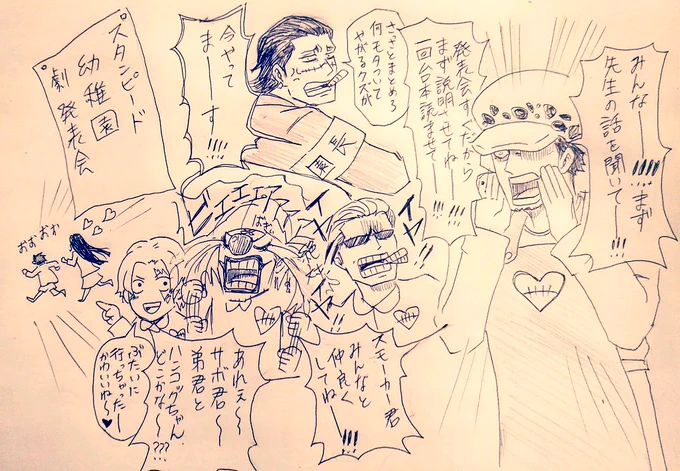 みんなー!!!!…まず
先生の話を聞いてー!!!
発表会すっだから
まず説明させてねー
一回台本読ませてー!!!
さっさとまとめろ
何モタついて
やがるクズが
園長
今やって
まーす!!!
スタンピード
幼稚園
劇発表会
おおおお
ビエエエア
イヤ
イヤ
スモーカー君
みんなと
仲良く
してねー!!!
あれぇ〜
サボ君〜
弟君と
ハンコックちゃん
どこかな〜???
ぶたいに
行っちゃったー
かわいいね〜♥